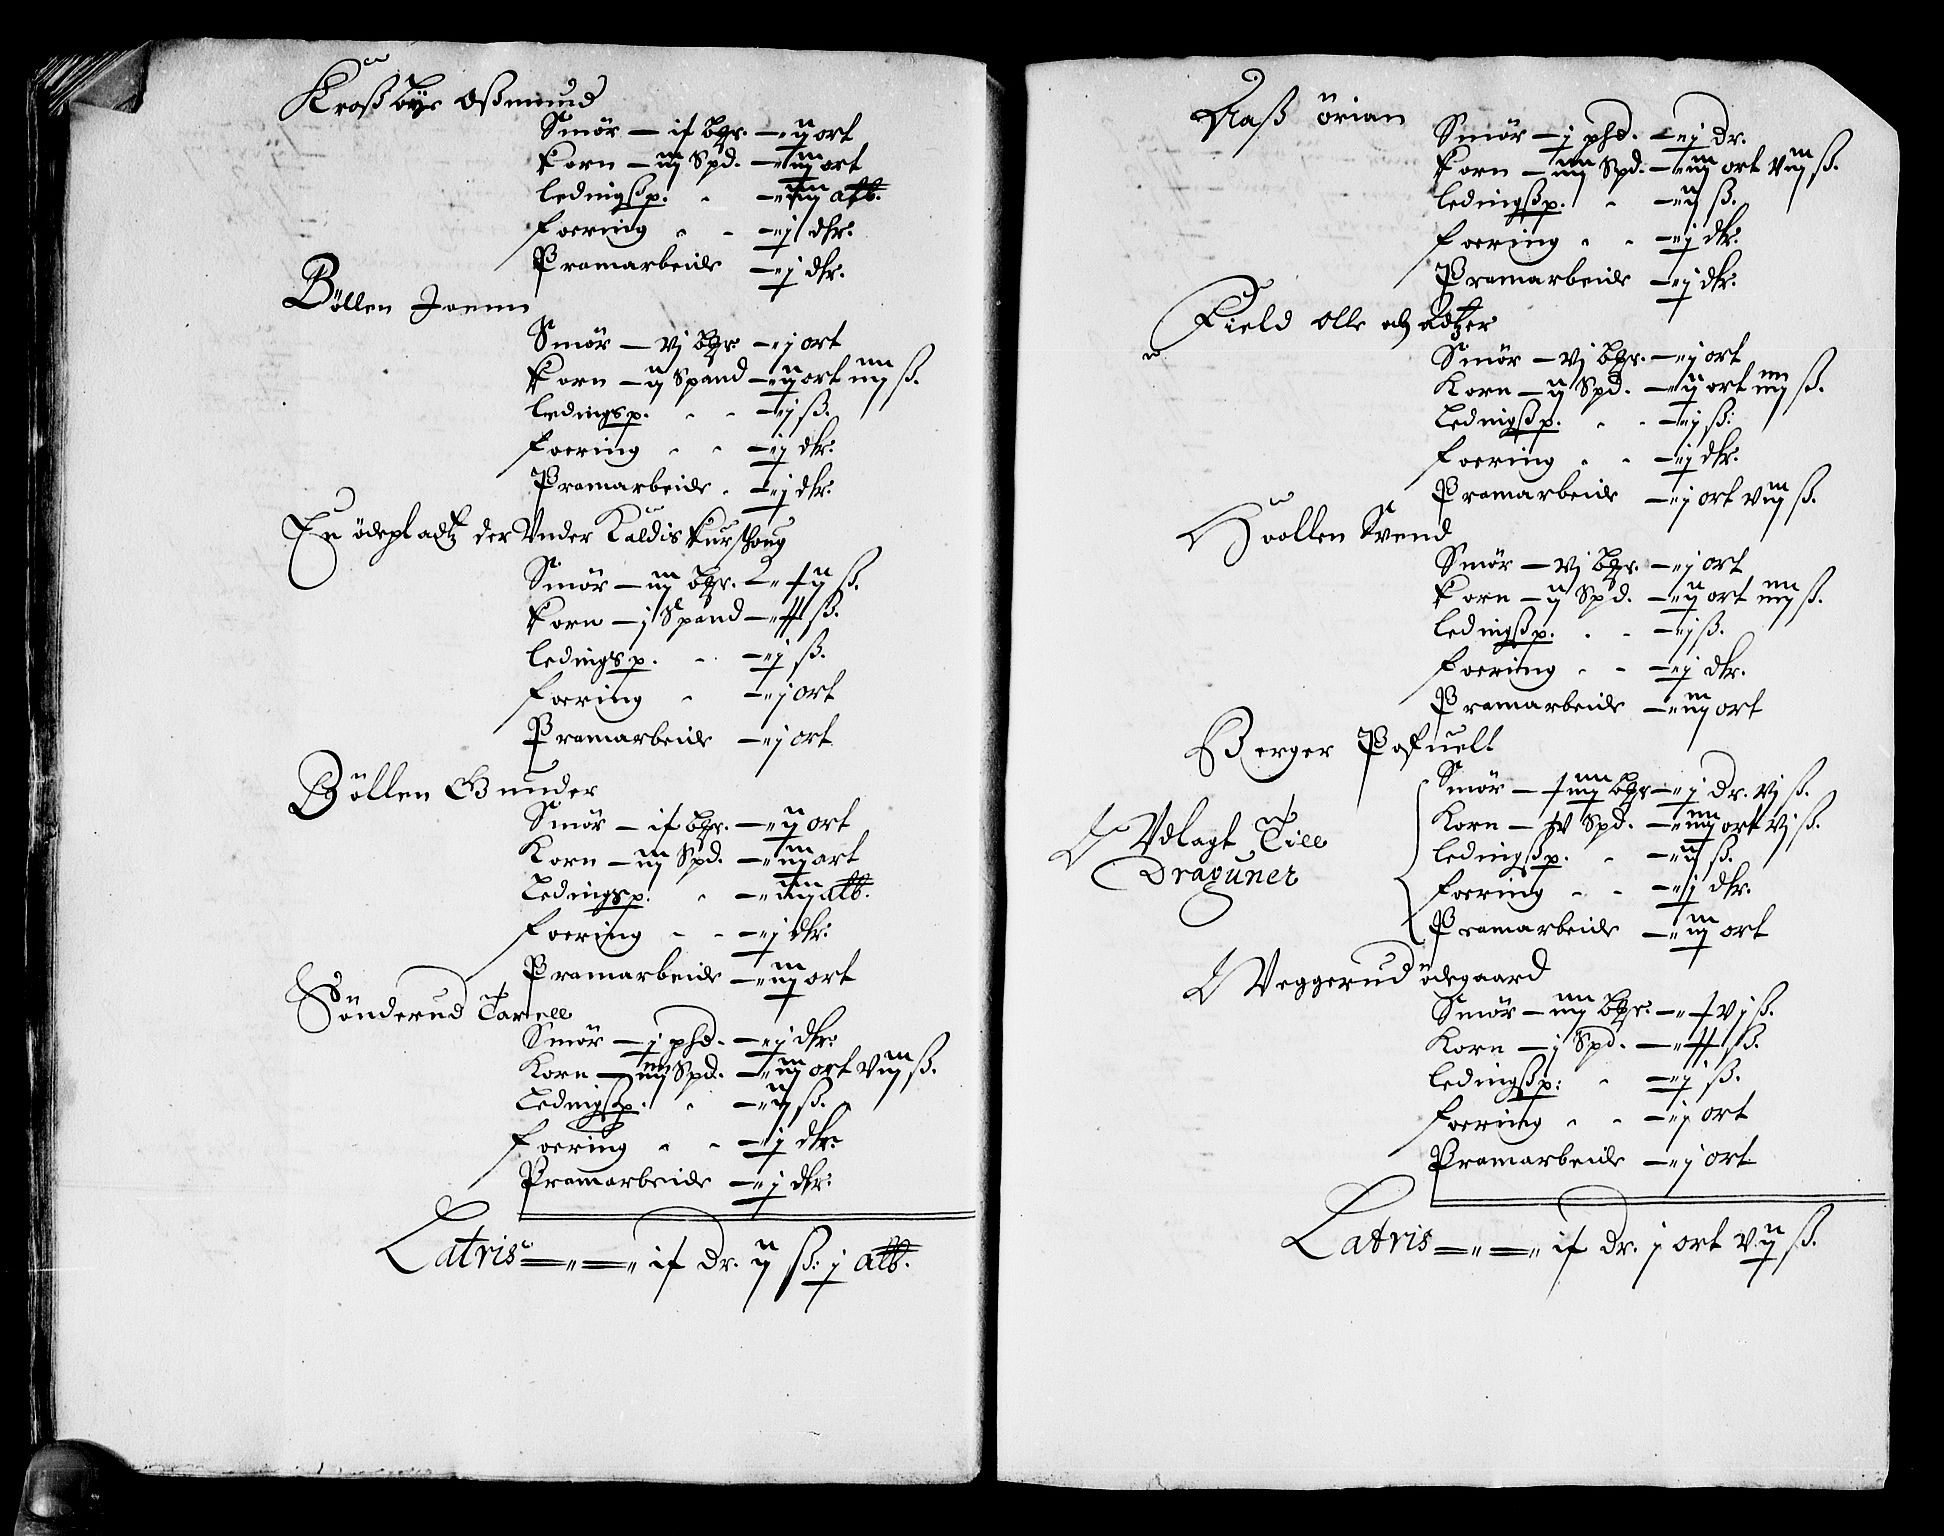 Kroßbÿe Oßmund
Smör — if bgr. — „ ij ort
Korn — iij Spd. — „ iij ort
ledingßp. — „ iiij alb.
foering — „ j dlr.
Pramarbeide — „ j dlr.
Böllen Joenn
Smör — vj bgr — „ j ort
Korn — ij Spand — „ ij ort iiij ß.
ledingsp. — „ j ß.
foering — „ j dlr.
Pramarbeide — „ j dlr.
En ödepladtz der Vnder Kaldis Kurshoug
Smör — iij bgr. — „ xij ß.
Korn — j Spand — „ xx ß.
ledingsp. — „ j ß.
foering — „ j ort
Pramarbeide — „ j ort
Böllen Gunder
Smör — if bgr. — „ ij ort
Korn — iij Spd. — „ iij ort
Ledingsp. — „ iiij alb.
foering — „ j dlr.
Pramarbeide — „ iij ort
Sönderud Tarell
Smör — j phd. — „ j dlr.
Korn — iiij Spd. — „ iij ort viij ß.
Ledingßp. — „ ij ß.
foering — „ j dlr
Pramarbeide — „ j dlr.
Latris = „ = „ if dr. ij ß: j alb.
Naß örian
Smör — j phd. — „ j dr.
Korn — iiij Spd. — „ iij ort viij ß.
ledingßp. — „ ij ß.
foering — „ j dlr.
Pramarbeide — „ j dlr.
Field olle och adtzer
Smör — vj bgr. — „ j ort
Korn — ij Spd. — „ ij ort iiij ß.
Ledingßp. — „ j ß:
foering — „ j dlr.
Pramarbeide — „ j ort viij ß.
Hoollen Svend
Smör — vj bgr. — „ j ort
Korn — ij Spd. — „ ij ort iiij ß.
ledingßp. — „ j ß.
foering — „ j dlr.
Pramarbeide — „ iij ort
Berger Pofuell
Vdlagt Till
Draguner
Smör — xiiij bgr — „ j dr. vj ß.
Korn — Spd. — „ iiij ort vj ß.
ledingßp. — „ ij ß.
foering — „ j dlr.
Pramarbeide — „ iij ort
Veggerud ödegaard
Smör — iiij bgr. — „ xvj ß.
Korn — j Spd. — „ xx ß.
ledingßp: — „ j ß.
foering — „ j ort
Pramarbeide — „ j ort
Latris = „ = „ if dr. j ort vij ß.